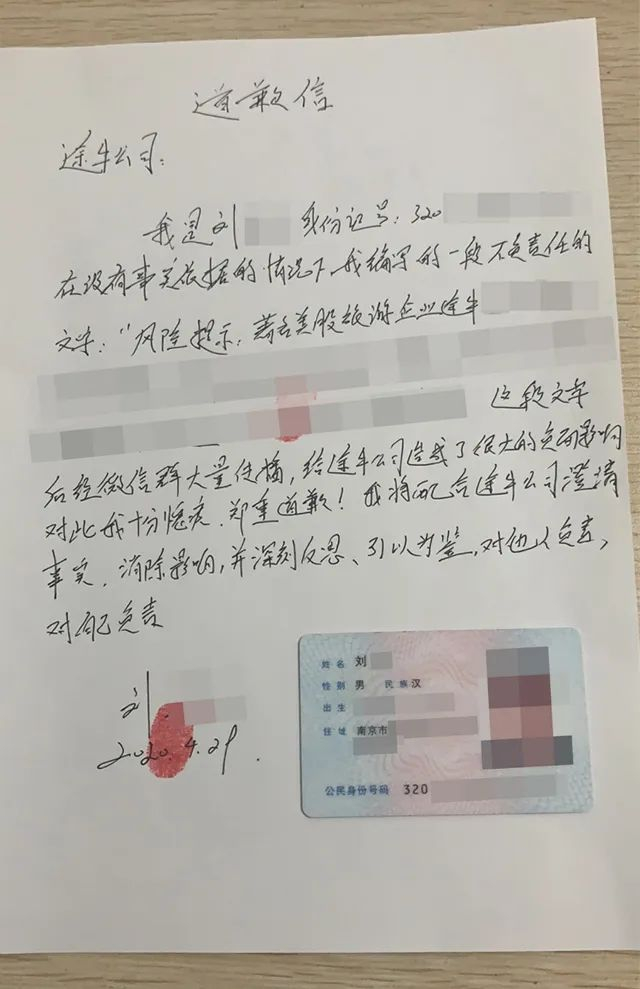 道歉信
途牛公司：
我是刘 身份证号：320
在没有事实依据的情况下，我编写的一段不负责任的
文字："风险提示：著名美股旅游企业途牛
这段文字
后经微信群大量传播，给途牛公司造成了很大的负面影响
对此我十分愧疚，郑重道歉！我将配合途牛公司澄清
事实，消除影响，并深刻反思、引以为鉴，对他人负责，
对自己负责
刘
2020.4.29.
姓名 刘
性别 男 民族 汉
出生
住址 南京市
公民身份号码 320